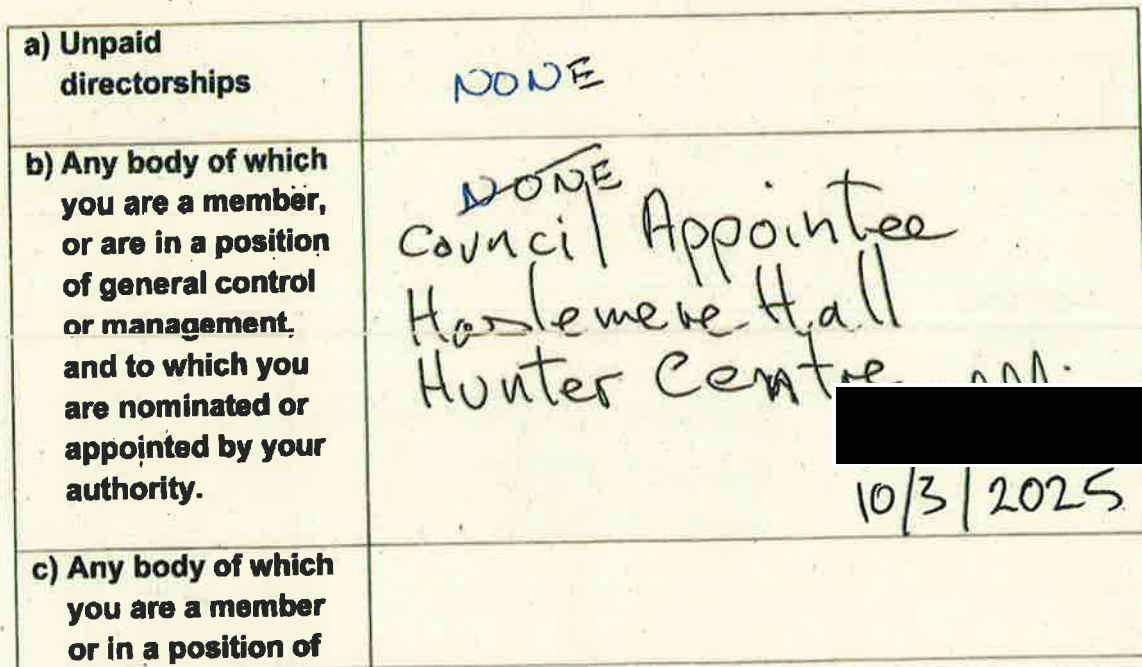 a) Unpaid
directorships
NONE
b) Any body of which
you are a member,
or are in a position
of general control
or management.
and to which you
are nominated or
appointed by your
authority.
NONE
Council Appointee
Haslemere Hall
Hunter Centre
10/3/2025
c) Any body of which
you are a member
or in a position of